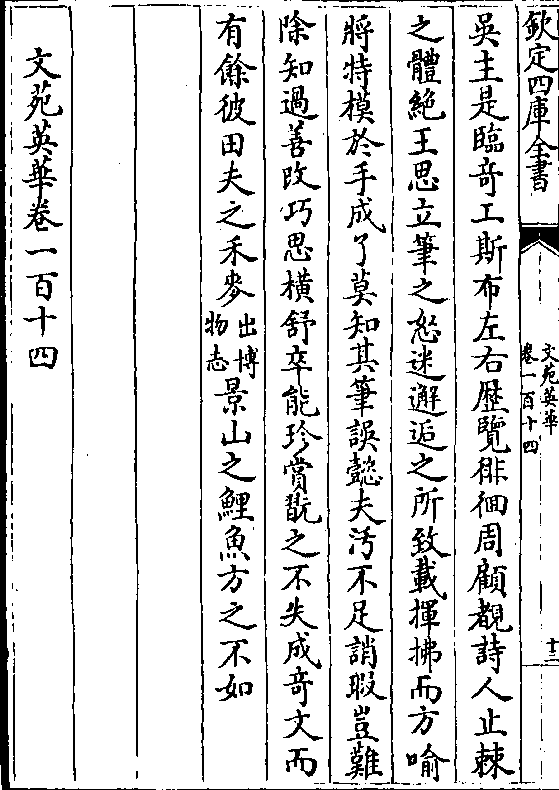 欽定四庫全書
文苑英華
卷一百十四
十三
吳主是臨奇工斯布左右歴覽徘徊周顧覩詩人止棘
之體絶王思立筆之怒迷邂逅之所致載揮拂而方喻
將特模於手成了莫知其筆誤懿夫汚不足誚瑕豈難
除知過善改巧思横舒卒能珍賞翫之不失成奇文而
有餘彼田夫之禾麥出博物志景山之鯉魚方之不如
文苑英華卷一百十四